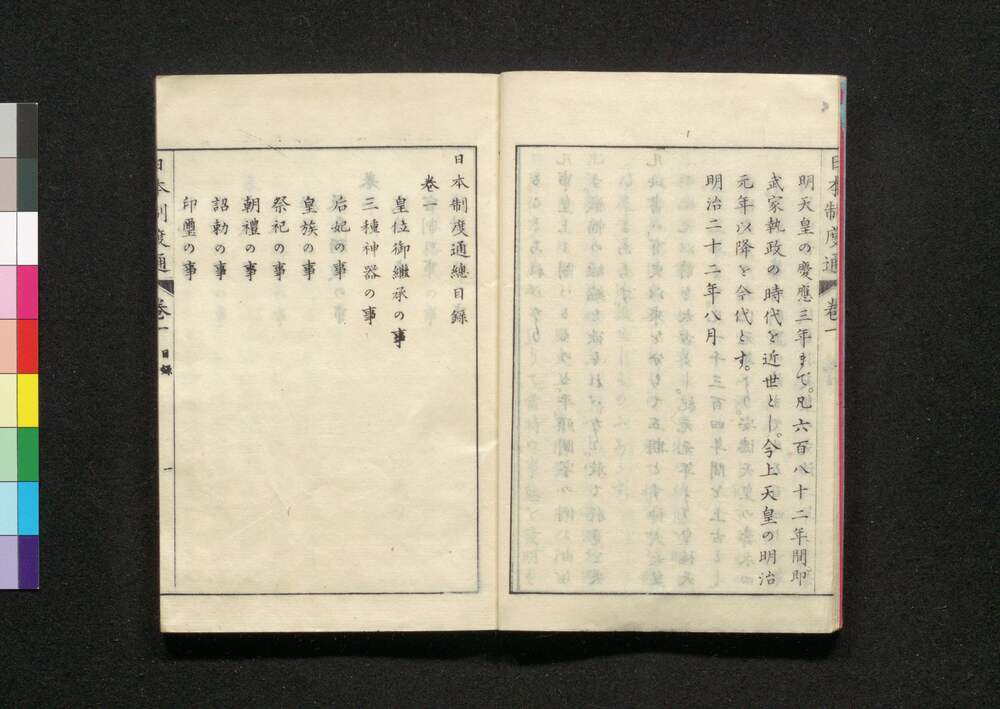 明天皇の慶應三年まで。凡六百八十二年間即
武家執政の時代を近世とし。今上天皇の明治
元年以降を今代とす。
明治二十二年八月
日本制度通 卷一
日本制度通總目錄
卷一
皇位御繼承の事
三種神器の事
后妃の事
皇族の事
祭祀の事
朝禮の事
詔勅の事
印璽の事
日本制度通 卷一 目錄 一